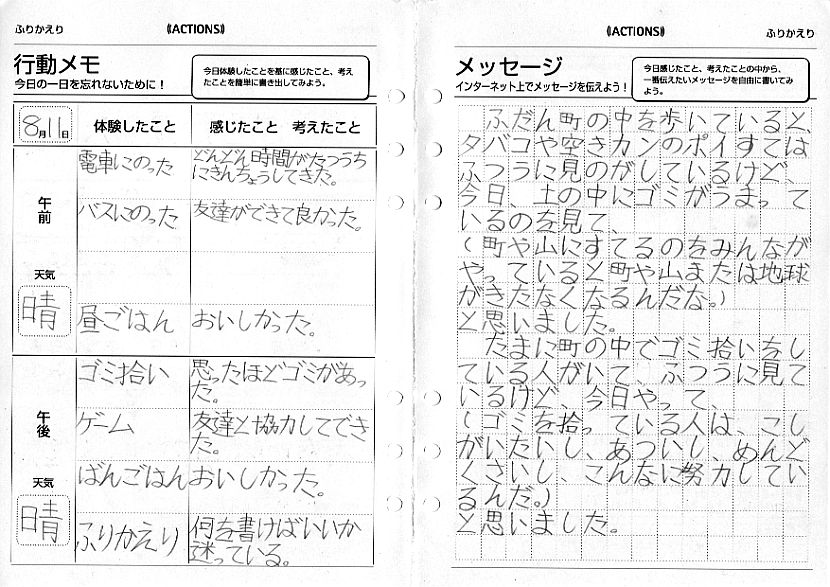 ふりかえり
《ACTIONS》
行動メモ
今日の一日を忘れないために！
今日体験したことを基に感じたこと、考え
たことを簡単に書き出してみよう。
8月11日
体験したこと
感じたこと 考えたこと
午前
天気
晴
電車にのった
どんどん時間がたつうち
にきんちょうしてきた。
バスにのった
友達ができて良かった。
昼ごはん
おいしかった。
午後
天気
晴
ゴミ拾い
思ったほどゴミがあっ
た。
ゲーム
友達と協力してでき
た。
ばんごはん
おいしかった。
ふりかえり
何を書けばいいか
迷っている。
《ACTIONS》
ふりかえり
メッセージ
インターネット上でメッセージを伝えよう！
今日感じたこと、考えたことの中から、
一番伝えたいメッセージを自由に書いてみ
よう。
ふだん町の中を歩いていると、
タバコや空きカンのポイすては
ふつうに見のがしているけど、
今日、土の中にゴミがうまって
いるのを見て、
(町や山にすてるのをみんなが
やっていると町や山または地球
がきたなくなるんだな。)
と思いました。
たまに町の中でゴミ拾いをし
ている人がいて、ふつうに見て
いるけど、今日やって、
(ゴミを拾っている人は、こし
がいたいし、あついし、めんど
くさいし、こんなに努力してい
るんだ。)
と思いました。